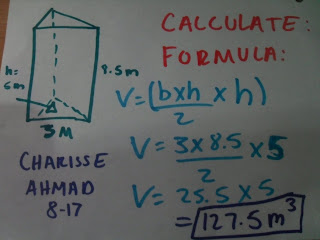 CALCULATE:
FORMULA:
h=
5m
8.5m
3M
V=(bxh x h)
2
V= 3x8.5 x5
2
V= 25.5 x 5
= 127.5m³
CHARISSE
AHMAD
8-17